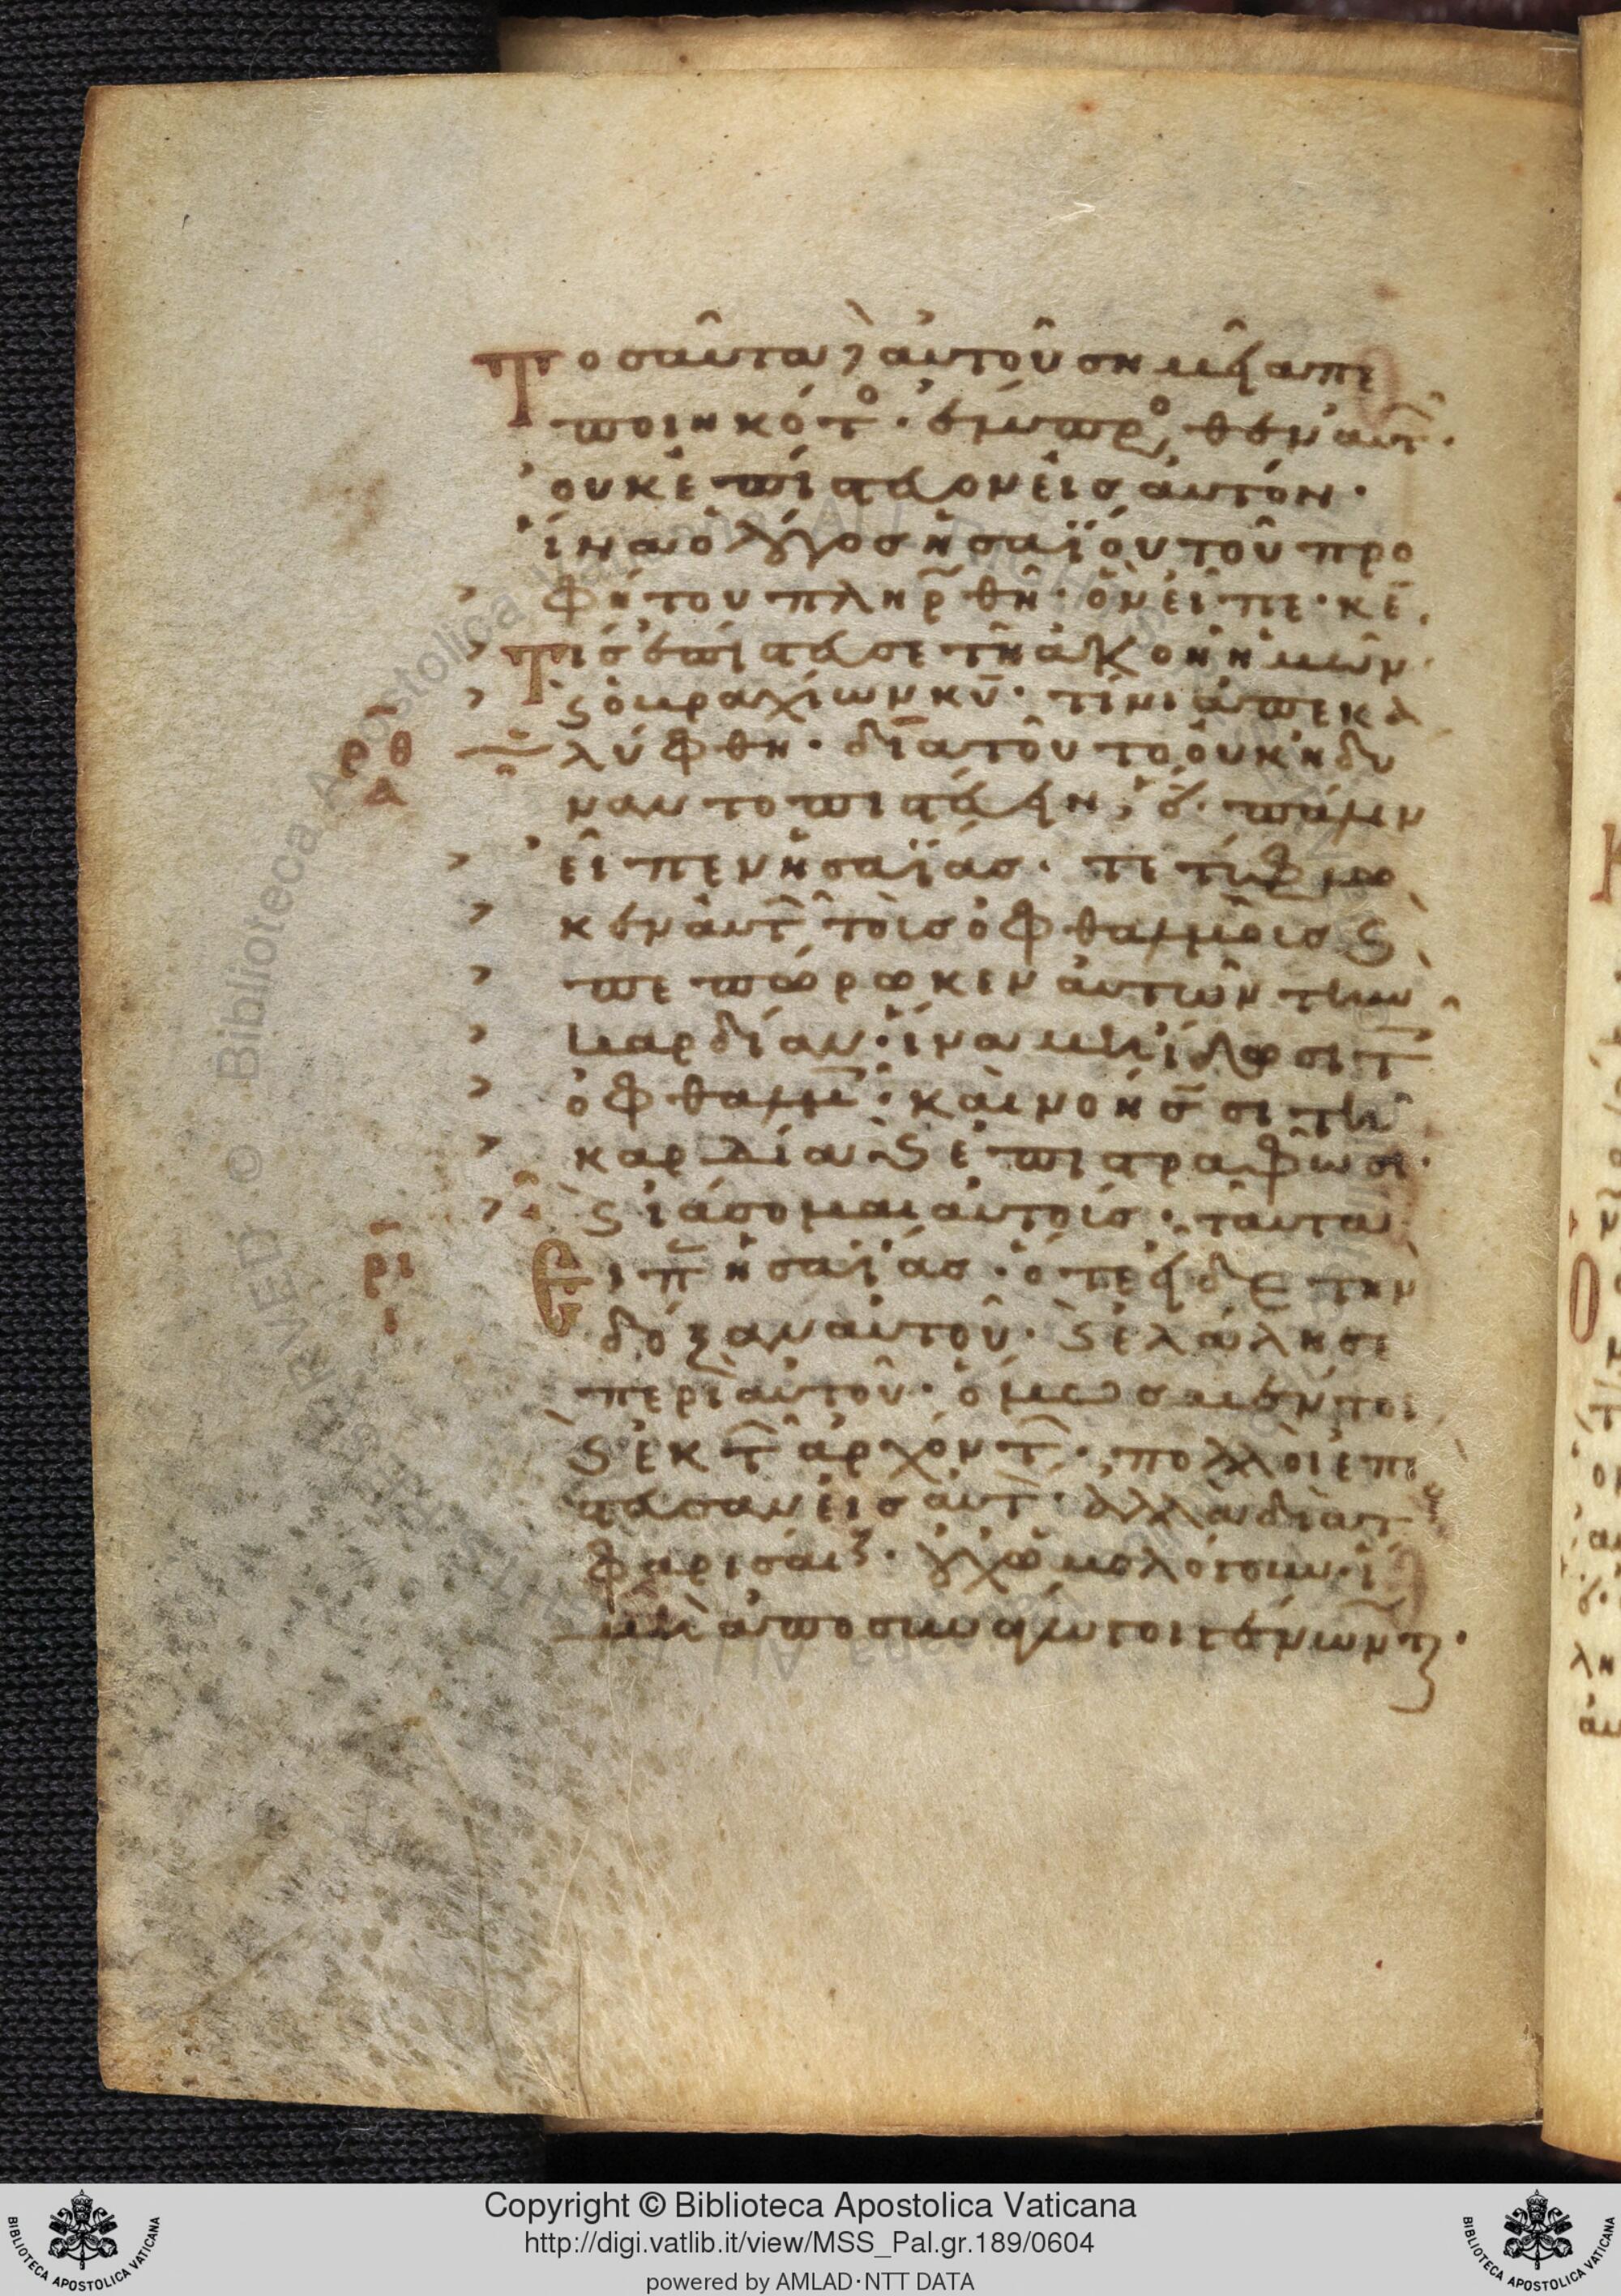 Τοσαῦτα δὲ αὐτοῦ σημεῖα πε
ποιηκότ ἔμπροσθεν αὐτ.
οὐκ ἐπίστευον εἰς αὐτόν.
ἵνα ὁ λόγος ἡσαΐου τοῦ προ
φήτου πληρωθῆ. ὃν εἶπε. κε̄,
Τίς ἐπίστευσε τῆ ἀκοῆ ἡμῶν.
ϛ ὁ βραχίων κῡ. τίνι ἀπεκα
ρθ λύφθη. διατοῦτο οὐκ ἠδύ
α ναντο πιστεύειν, ὅτι πάλιν
εἶπεν ἡσαΐας. τετύφλω
κεν αὐτ τοὺς ὀφθαλμοὺς ϛ
πεπώρωκεν αὐτῶν τὴν
καρδίαν. ἵνα μὴ ἴδωσι τ
ὀφθαλμ. καὶ νοήσ σι τὴ
καρδία ϛ ἐπιστραφῶσι.
ϛ ἰάσομαι αὐτοίς. ταῦτα
ρι Εἰπ ἡσαΐας. ὅτε εἶδε τὴν
ι δόξαν αὐτοῦ. ϛ ἐλάλησε
περὶ αὐτοῦ. ὅμως μέντοι
ϛ ἐκ τ ἀρχόντ. πολλοὶ ἐπί
στευσαν εἰς αὐτ. ἀλλὰ διὰ τ
φαρισαί. οὐχ ὡμολόγουν. ἵ
μὴ ἀποσυνάγωγοι γένωντ.
Copyright © Biblioteca Apostolica Vaticana
http://digi.vatlib.it/view/MSS_Pal.gr.189/0604
powered by AMLAD·NTT DATA
BIBLIOTECA APOSTOLICA VATICANA
BIBLIOTECA APOSTOLICA VATICANA